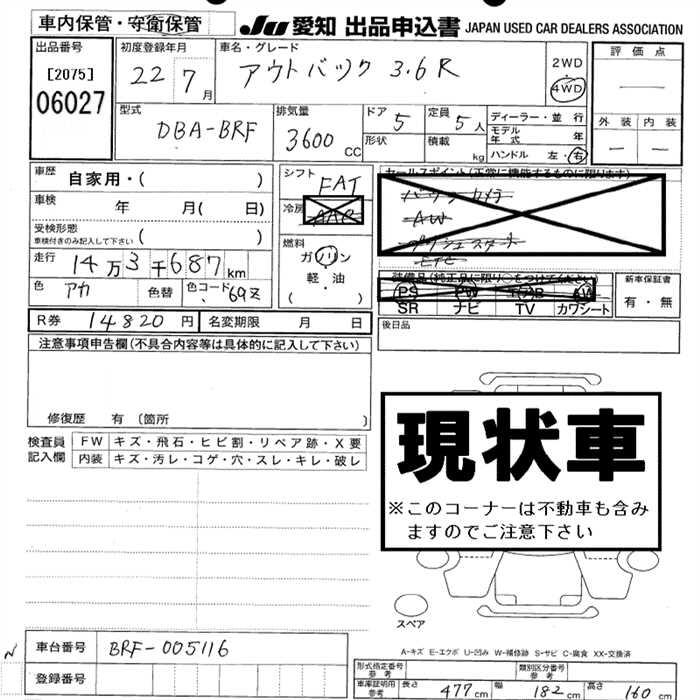 車内保管・守衛保管
JU 愛知 出品申込書 JAPAN USED CAR DEALERS ASSOCIATION
出品番号
[2075]
06027
初度登録年月
22 7月
車名・グレード
アウトバック 3.6R
2WD
・
4WD
評価点
型式
DBA-BRF
排気量
3600 CC
ドア
5
形状
定員
5人
積載
kg
ディーラー・並 行
モデル年式 年
ハンドル 左・右
外装 内装
車歴 自家用・( )
車検 年 月( 日)
受検形態
車検付きのみ記入して下さい ( )
走行 14万3千687km
色 アカ 色替 色コード 69Z
シフト
FAT
冷房
AAC
燃料
ガソリン
・
軽・油
( )
セールスポイント(正常に機能するものに限ります)
バックカメラ
AW
プッシュスタート
ETC
装備品(純正品に限り○をつけてください)
PS PW AW
SR ナビ TV カワシート
新車保証書
有・無
後日品
R券 14820円 名変期限 月 日
注意事項申告欄(不具合内容等は具体的に記入して下さい)
修復歴 有 〔箇所 〕
検査員
記入欄
FW キズ・飛石・ヒビ割・リペア跡・X要
内装 キズ・汚レ・コゲ・穴・スレ・キレ・破レ
現状車
※このコーナーは不動車も含み
ますのでご注意下さい
スペア
A-キズ E-エクボ U-凹み W-補修跡 S-サビ C-腐食 XX-交換済
車台番号 BRF-005116
登録番号
形式指定番号
参考
類別区分番号
参考
車庫証明用
参考
長さ 477cm 幅 182cm 高さ 160cm